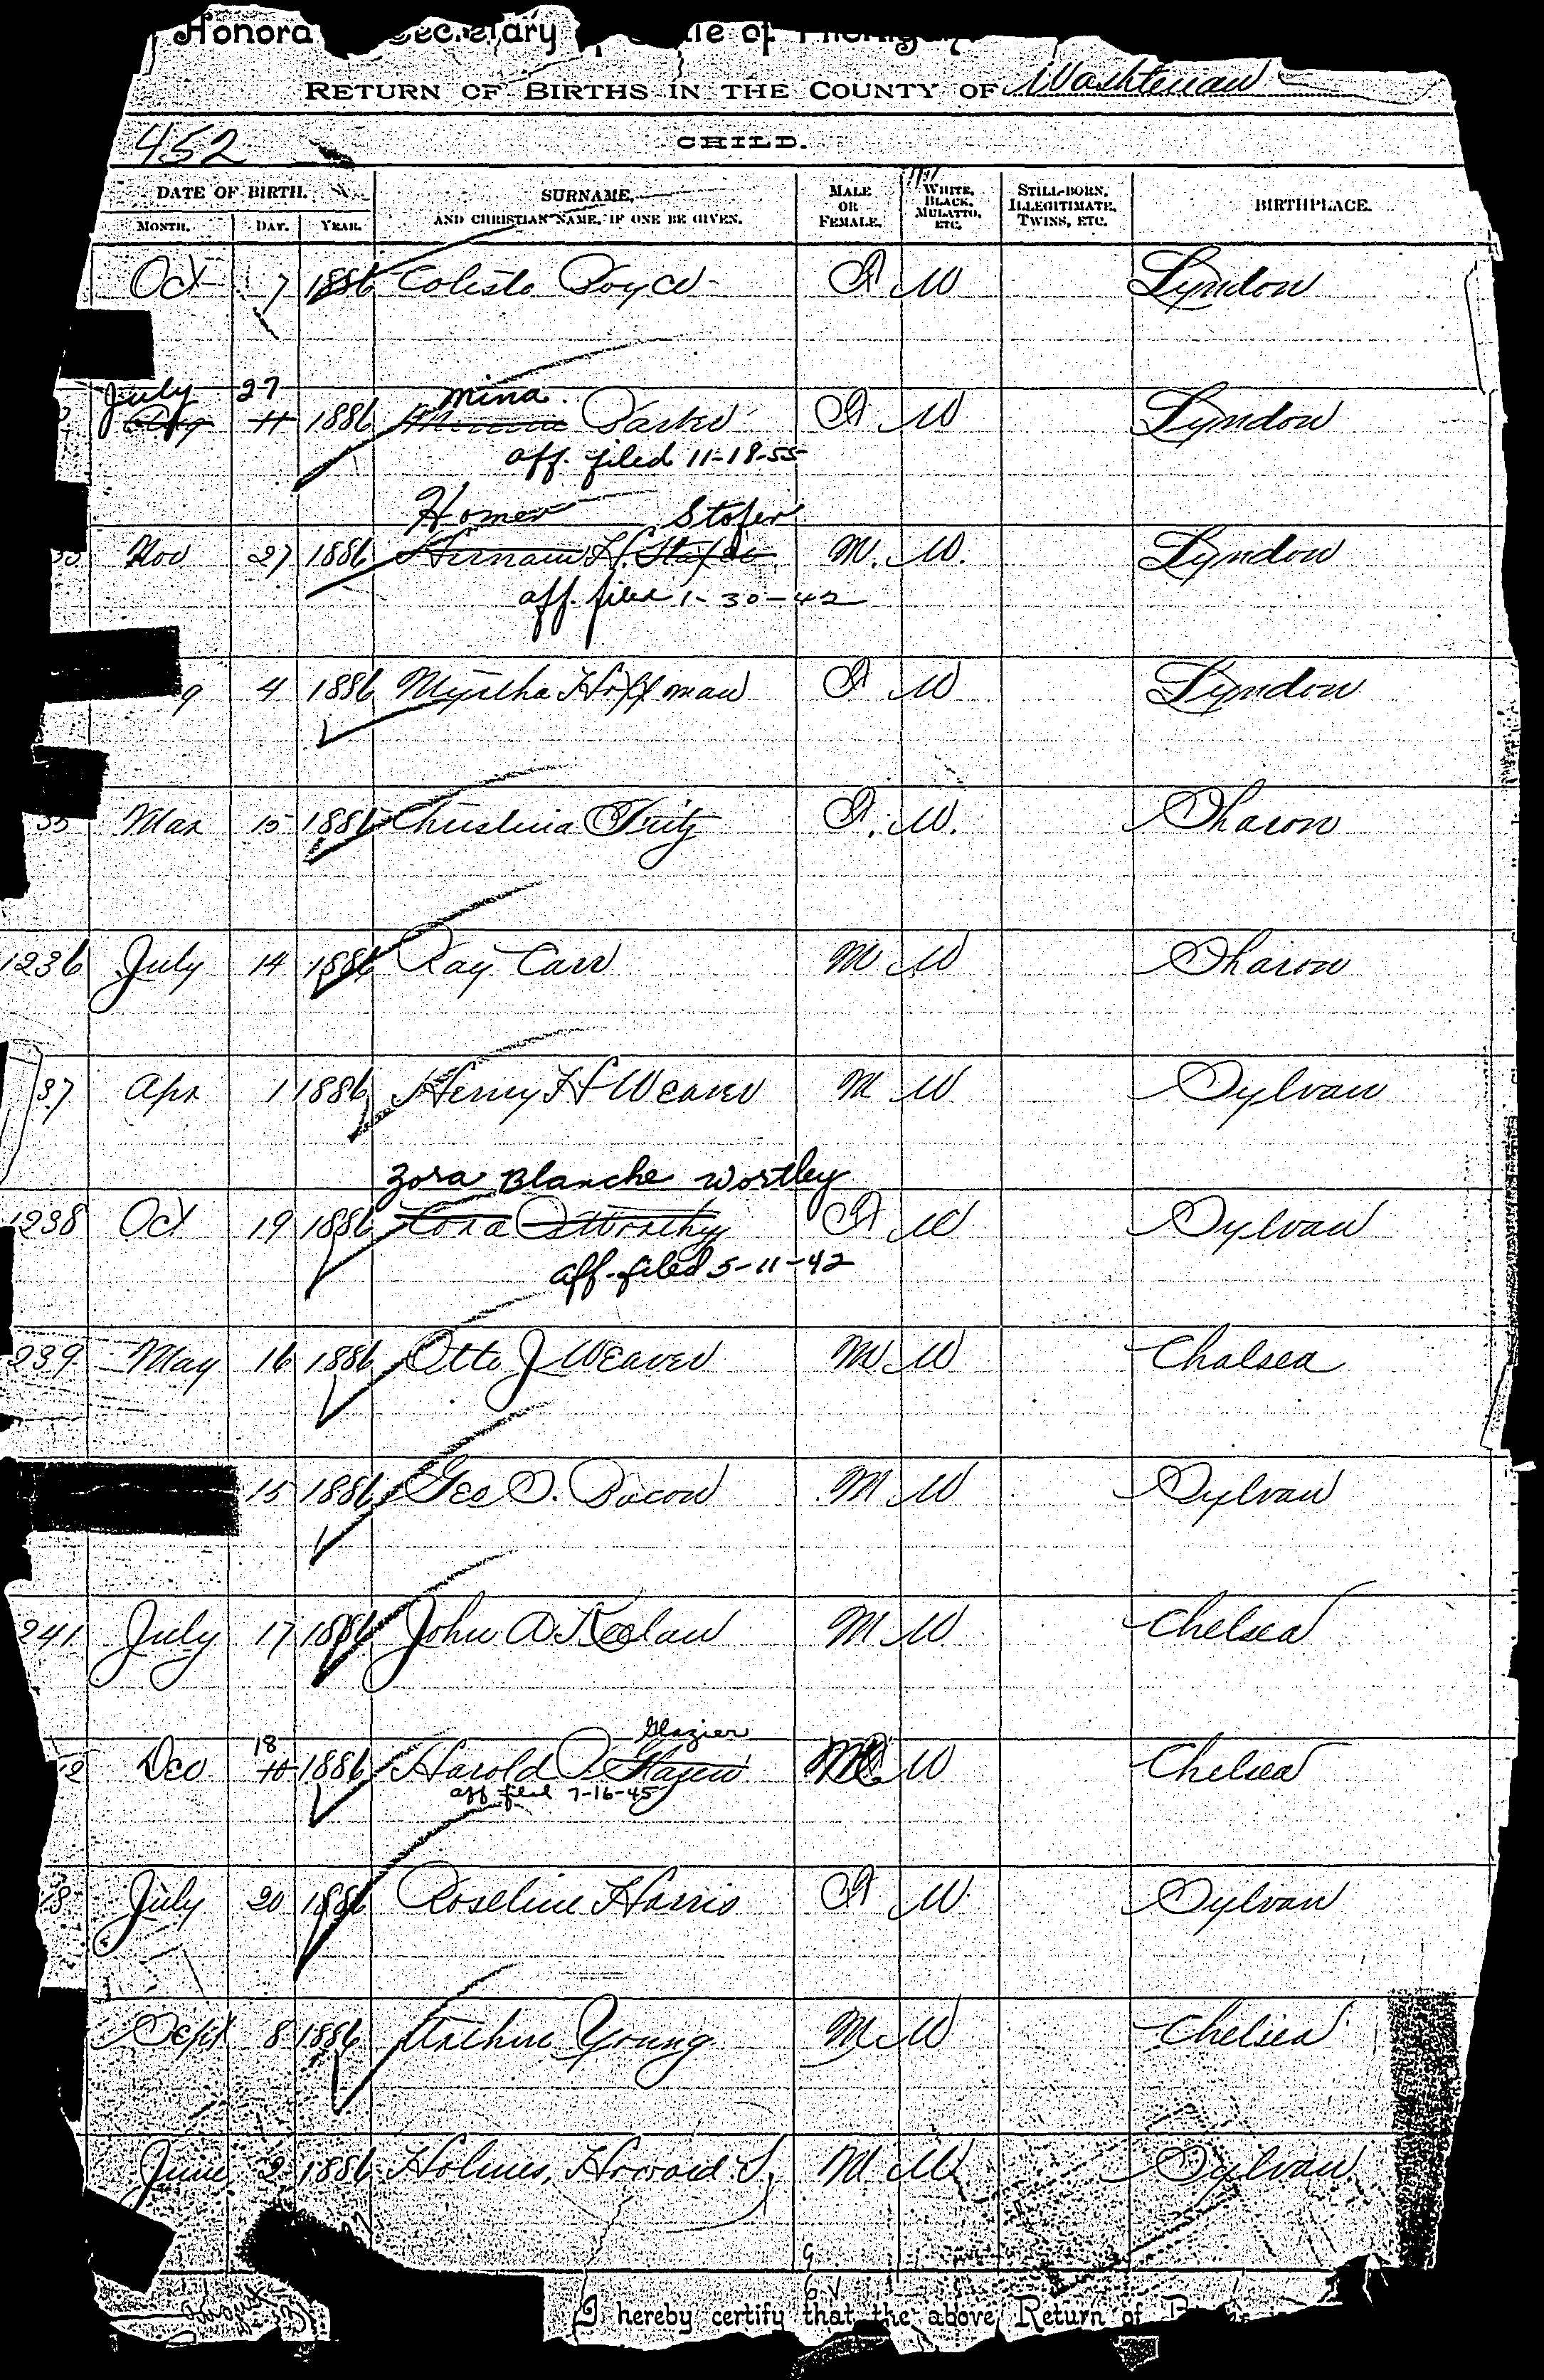 Honora Secretary of
RETURN OF BIRTHS IN THE COUNTY OF Washtenaw
452 CHILD.
DATE OF BIRTH. SURNAME, MALE WHITE, STILL-BORN, BIRTHPLACE.
AND CHRISTIAN NAME, IF ONE BE GIVEN. OR BLACK, ILLEGITIMATE,
MONTH. DAY. YEAR. FEMALE. MULATTO, TWINS, ETC.
ETC.
Oct 7 1886 Boyce F W Lyndon
July 27 Mina
Aug 11 1886 Parker F W Lyndon
aff. filed 11-18-55
Homer Stofer
Nov 27 1886 M. W. Lyndon
aff. filed 1-30-42
4 1886 Myrtha Hoffman F W Lyndon
35 Mar 15 Christina Fritz F. W. Sharon
1236 July 14 1886 Ray Carr M W Sharon
37 Apr 1 1886 Henry H Weaver M W Sylvan
Zora Blanche Wortley
1238 Oct 19 1886 F W Sylvan
aff. filed 5-11-42
239 May 16 1886 Otto J Weaver M W Chelsea
15 1886 Geo Bacon M W Sylvan
241 July 17 1886 John M W Chelsea
18 Glazier
Dec 10 1886 Harold M W Chelsea
aff filed 7-16-45
July 20 1886 Roseline Harris F W Sylvan
Sept 8 1886 Arthur Young M W Chelsea
June 2 1886 Holmes, Howard S. M W Sylvan
I hereby certify that the above Return of